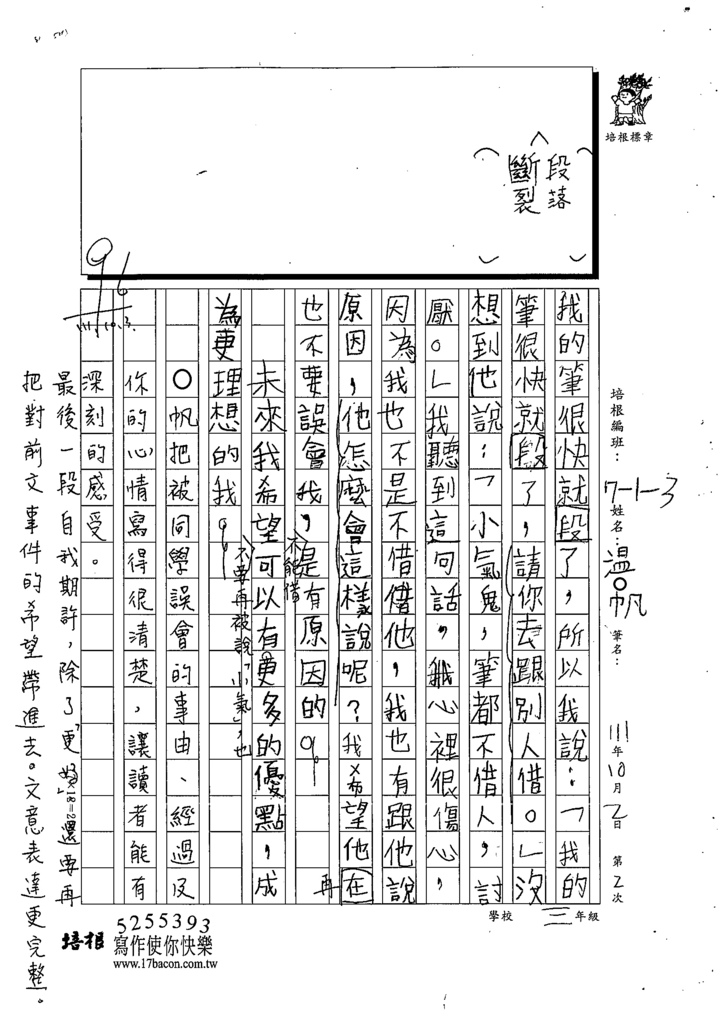 培根標章
段落
斷裂
96
111.10.3.
培根編班：7-1-3 姓名：溫○帆 筆名： 111年10月2日 第2次
我的筆很快就段了，所以我說：「我的
筆很快就段了，請你去跟別人借。」沒
想到他說：「小氣鬼，筆都不借人，討
厭。」我聽到這句話，我心裡很傷心，
因為我也不是不借借他，我也有跟他說
原因，他怎麼會這樣說呢？我希望他在
再
也不要誤會我，是有原因的。
不能借
未來我希望可以有更多的優點，成
不要再被說「小氣」，也
為更理想的我。
○帆把被同學誤會的事由、經過及
你的心情寫得很清楚，讓讀者能有
深刻的感受。
最後一段自我期許，除了「更好」還要再
把對前文事件的希望帶進去。文意表達更完整。
學校 三年級
5255393
培根 寫作使你快樂
www.17bacon.com.tw